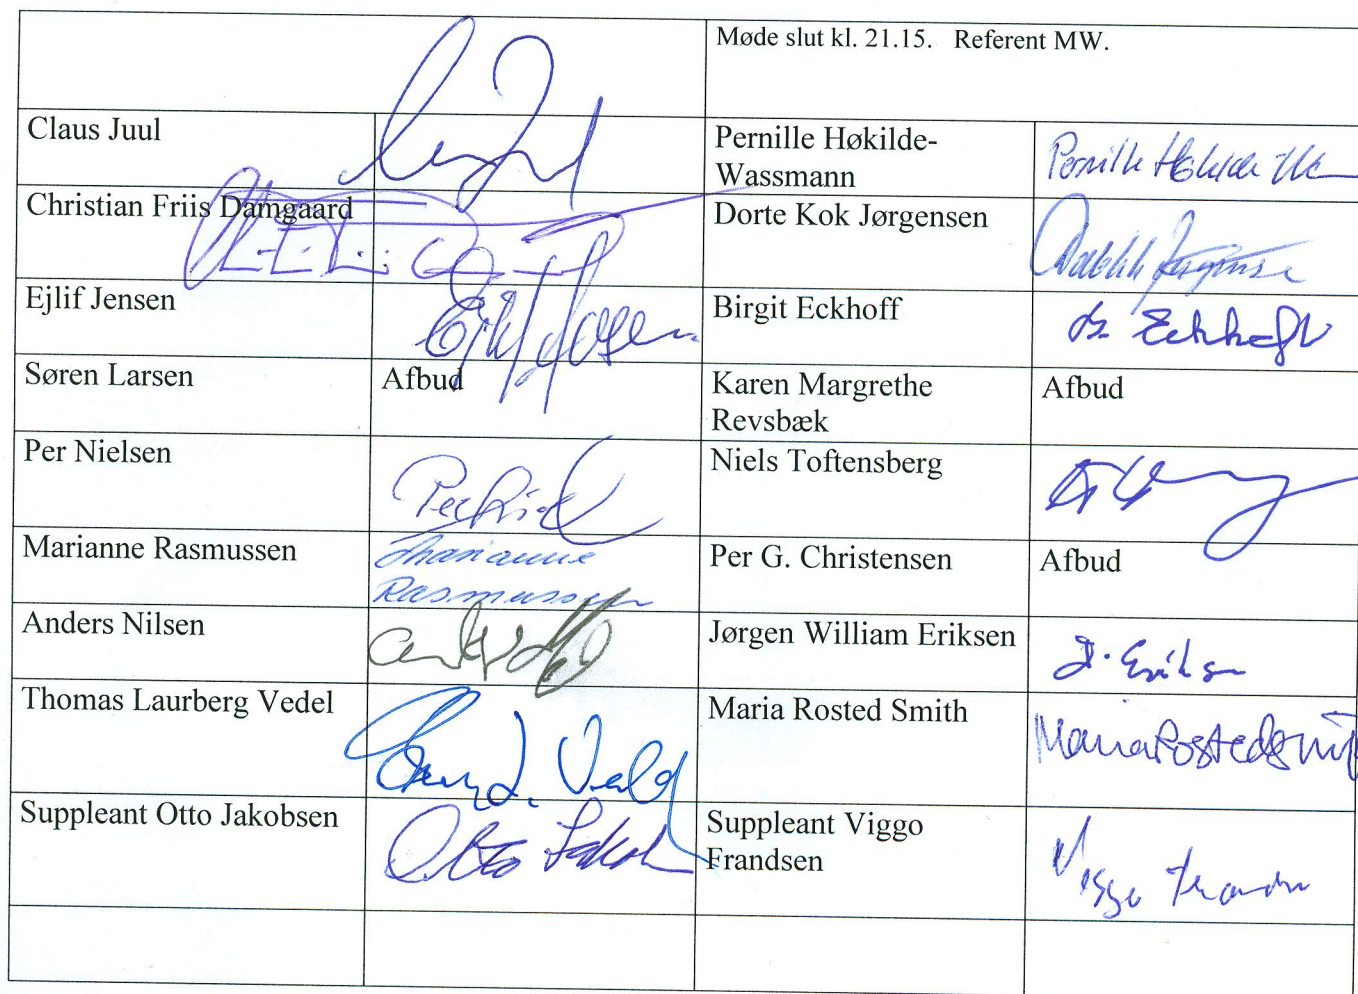 Møde slut kl. 21.15. Referent MW.
Claus Juul
Pernille Høkilde-
Wassmann
Pernille Høkilde
Christian Friis Damgaard
Dorte Kok Jørgensen
Ejlif Jensen
Birgit Eckhoff
Eckhoff
Søren Larsen
Afbud
Karen Margrethe
Revsbæk
Afbud
Per Nielsen
Niels Toftensberg
Marianne Rasmussen
Marianne
Rasmussen
Per G. Christensen
Afbud
Anders Nilsen
Jørgen William Eriksen
J. Eriksen
Thomas Laurberg Vedel
Maria Rosted Smith
Maria Rosted Smith
Suppleant Otto Jakobsen
Otto
Suppleant Viggo
Frandsen
Viggo